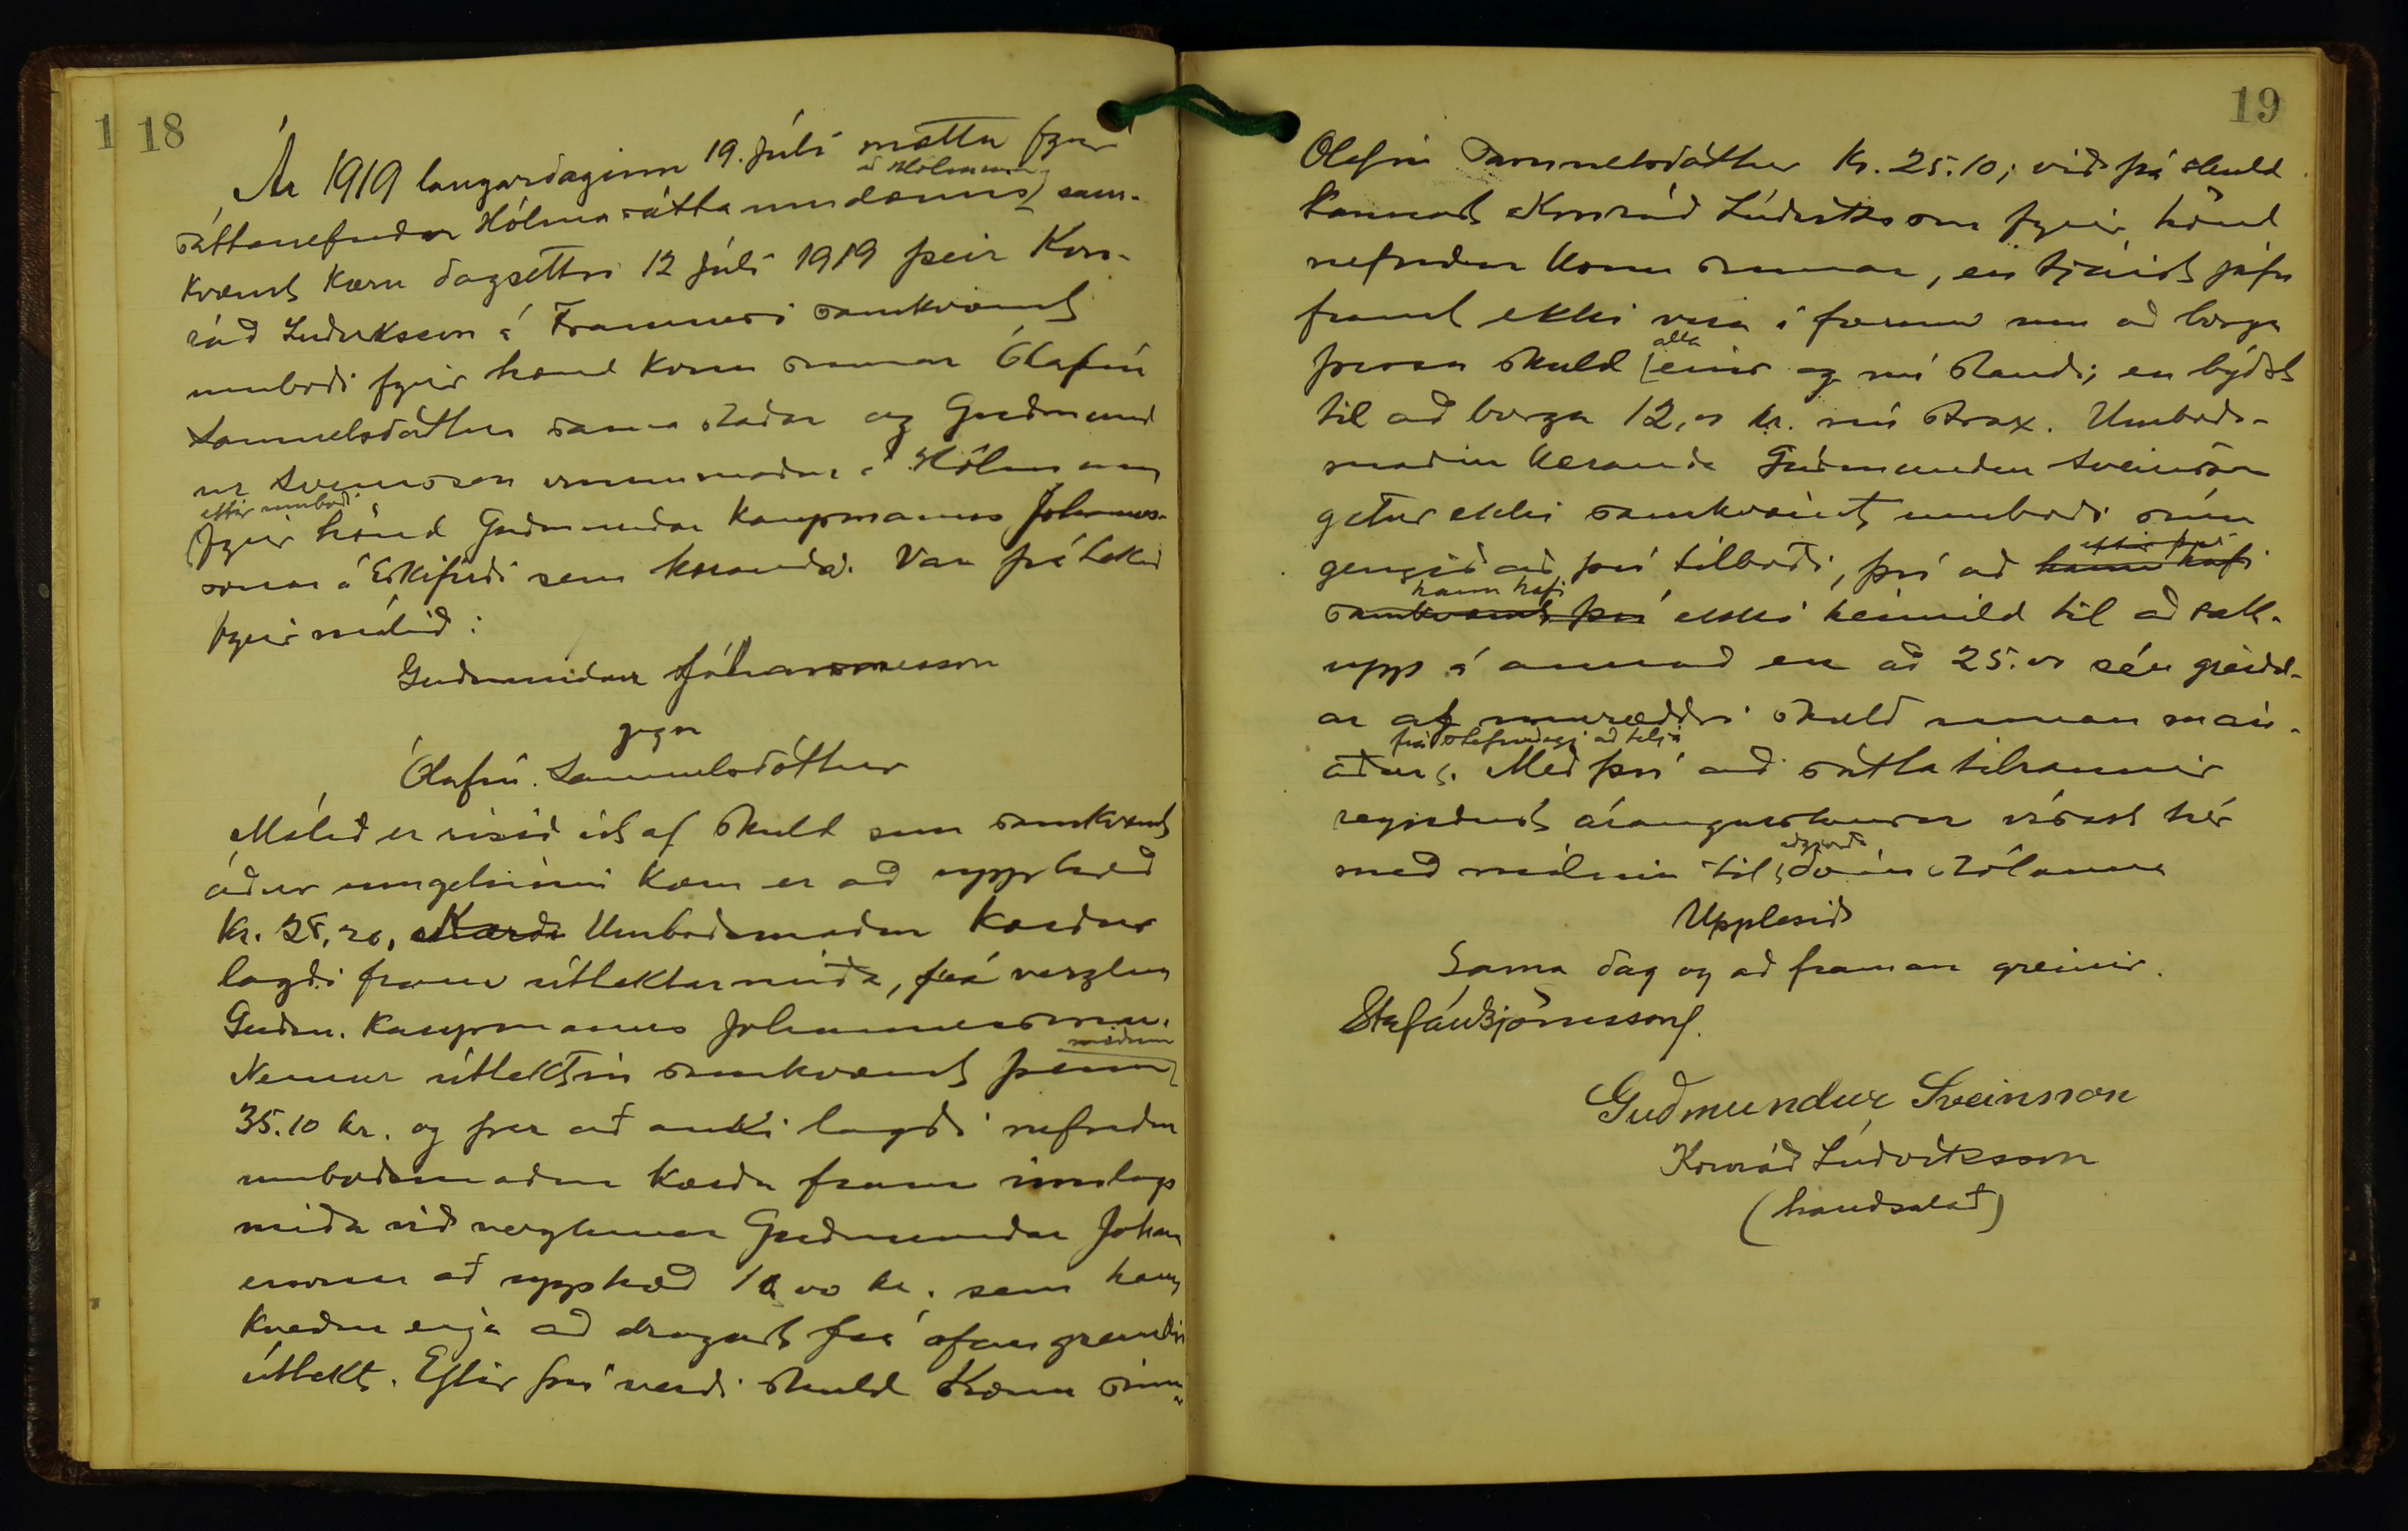 1 18
Ár 1919 laugardaginn 19. júlí mættu fyrir
sáttanefndar Hólma sáttaumdæmis á Hólmum sam-
kvæmt kæru dagsettri 12 júlí 1919 þeir Kon-
ráð Lúðvíksson á Framnesi samkvæmt
umboði fyrir hönd konu sinnar Ólafíu
Samúelsdóttur sama staðar og Guðmund
ur Sveinsson vinnumaður á Hólmum
eftir umboði
fyrir hönd Guðmundar kaupmanns Jóhannes-
sonar á Eskifirði sem kæranda. Var þá tekið
fyrir málið:
Guðmundur Jóhannesson
gegn
Ólafíu Samúelsdóttur
Málið er risið út af skuld sem samkvæmt
áður umgetinni kæru er að upphæð
Kr. 28,20. Kærði Umboðsmaður kærðar
lagði fram úttektarmiða, frá verzlun
Guðm. kaupmanns Jóhannessonar.
Nemur úttektin samkvæmt þeim miðum
35.10 kr. og þar að auki lagði nefndur
umboðsmaður kærðu fram innlags
miða við verzlunar Guðmundar Johan
essonar að upphæð 10 00 kr. sem hann
kveður eiga að dragast frá ofangreindri
úttekt. Eftir því verði skuld konu sinn-
ar
19
Olafíu Samúelsdóttur Kr. 25.10; við þá skuld
kannast Konráð Lúðvíksson fyrir hönd
nefndrar konu sinnar, en tjáist jafn
framt ekki vera í færum um að borga
þessa skuld alla eins og nú standi; en býðst
til að borga 12,00 kr. nú strax. Umboðs-
maður kæranda Guðmundur Sveinsson
getur ekki samkvæmt umboði sínu
gengið að því tilboði, því að hann hafi eftir því
samkvæmt því hann hafi ekki heimild til að sætt-
upp á annað en að 25.00 séu greidd-
ar af umræddri skuld innan mán-
aðar frá stefnudegi að telja. Með því að sáttatilraunir
reyndust árangurslausar vísast hér
með málinu til aðgjörða dómstólanna
Upplesið
Sama dag og að framan greinir.
Stefán Björnsson.
Guðmundur Sveinsson
Konráð Lúðvíksson
(handsalað)